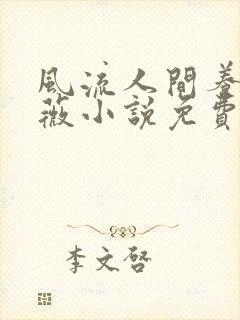 風流人間養
薇小說免費
李文啓